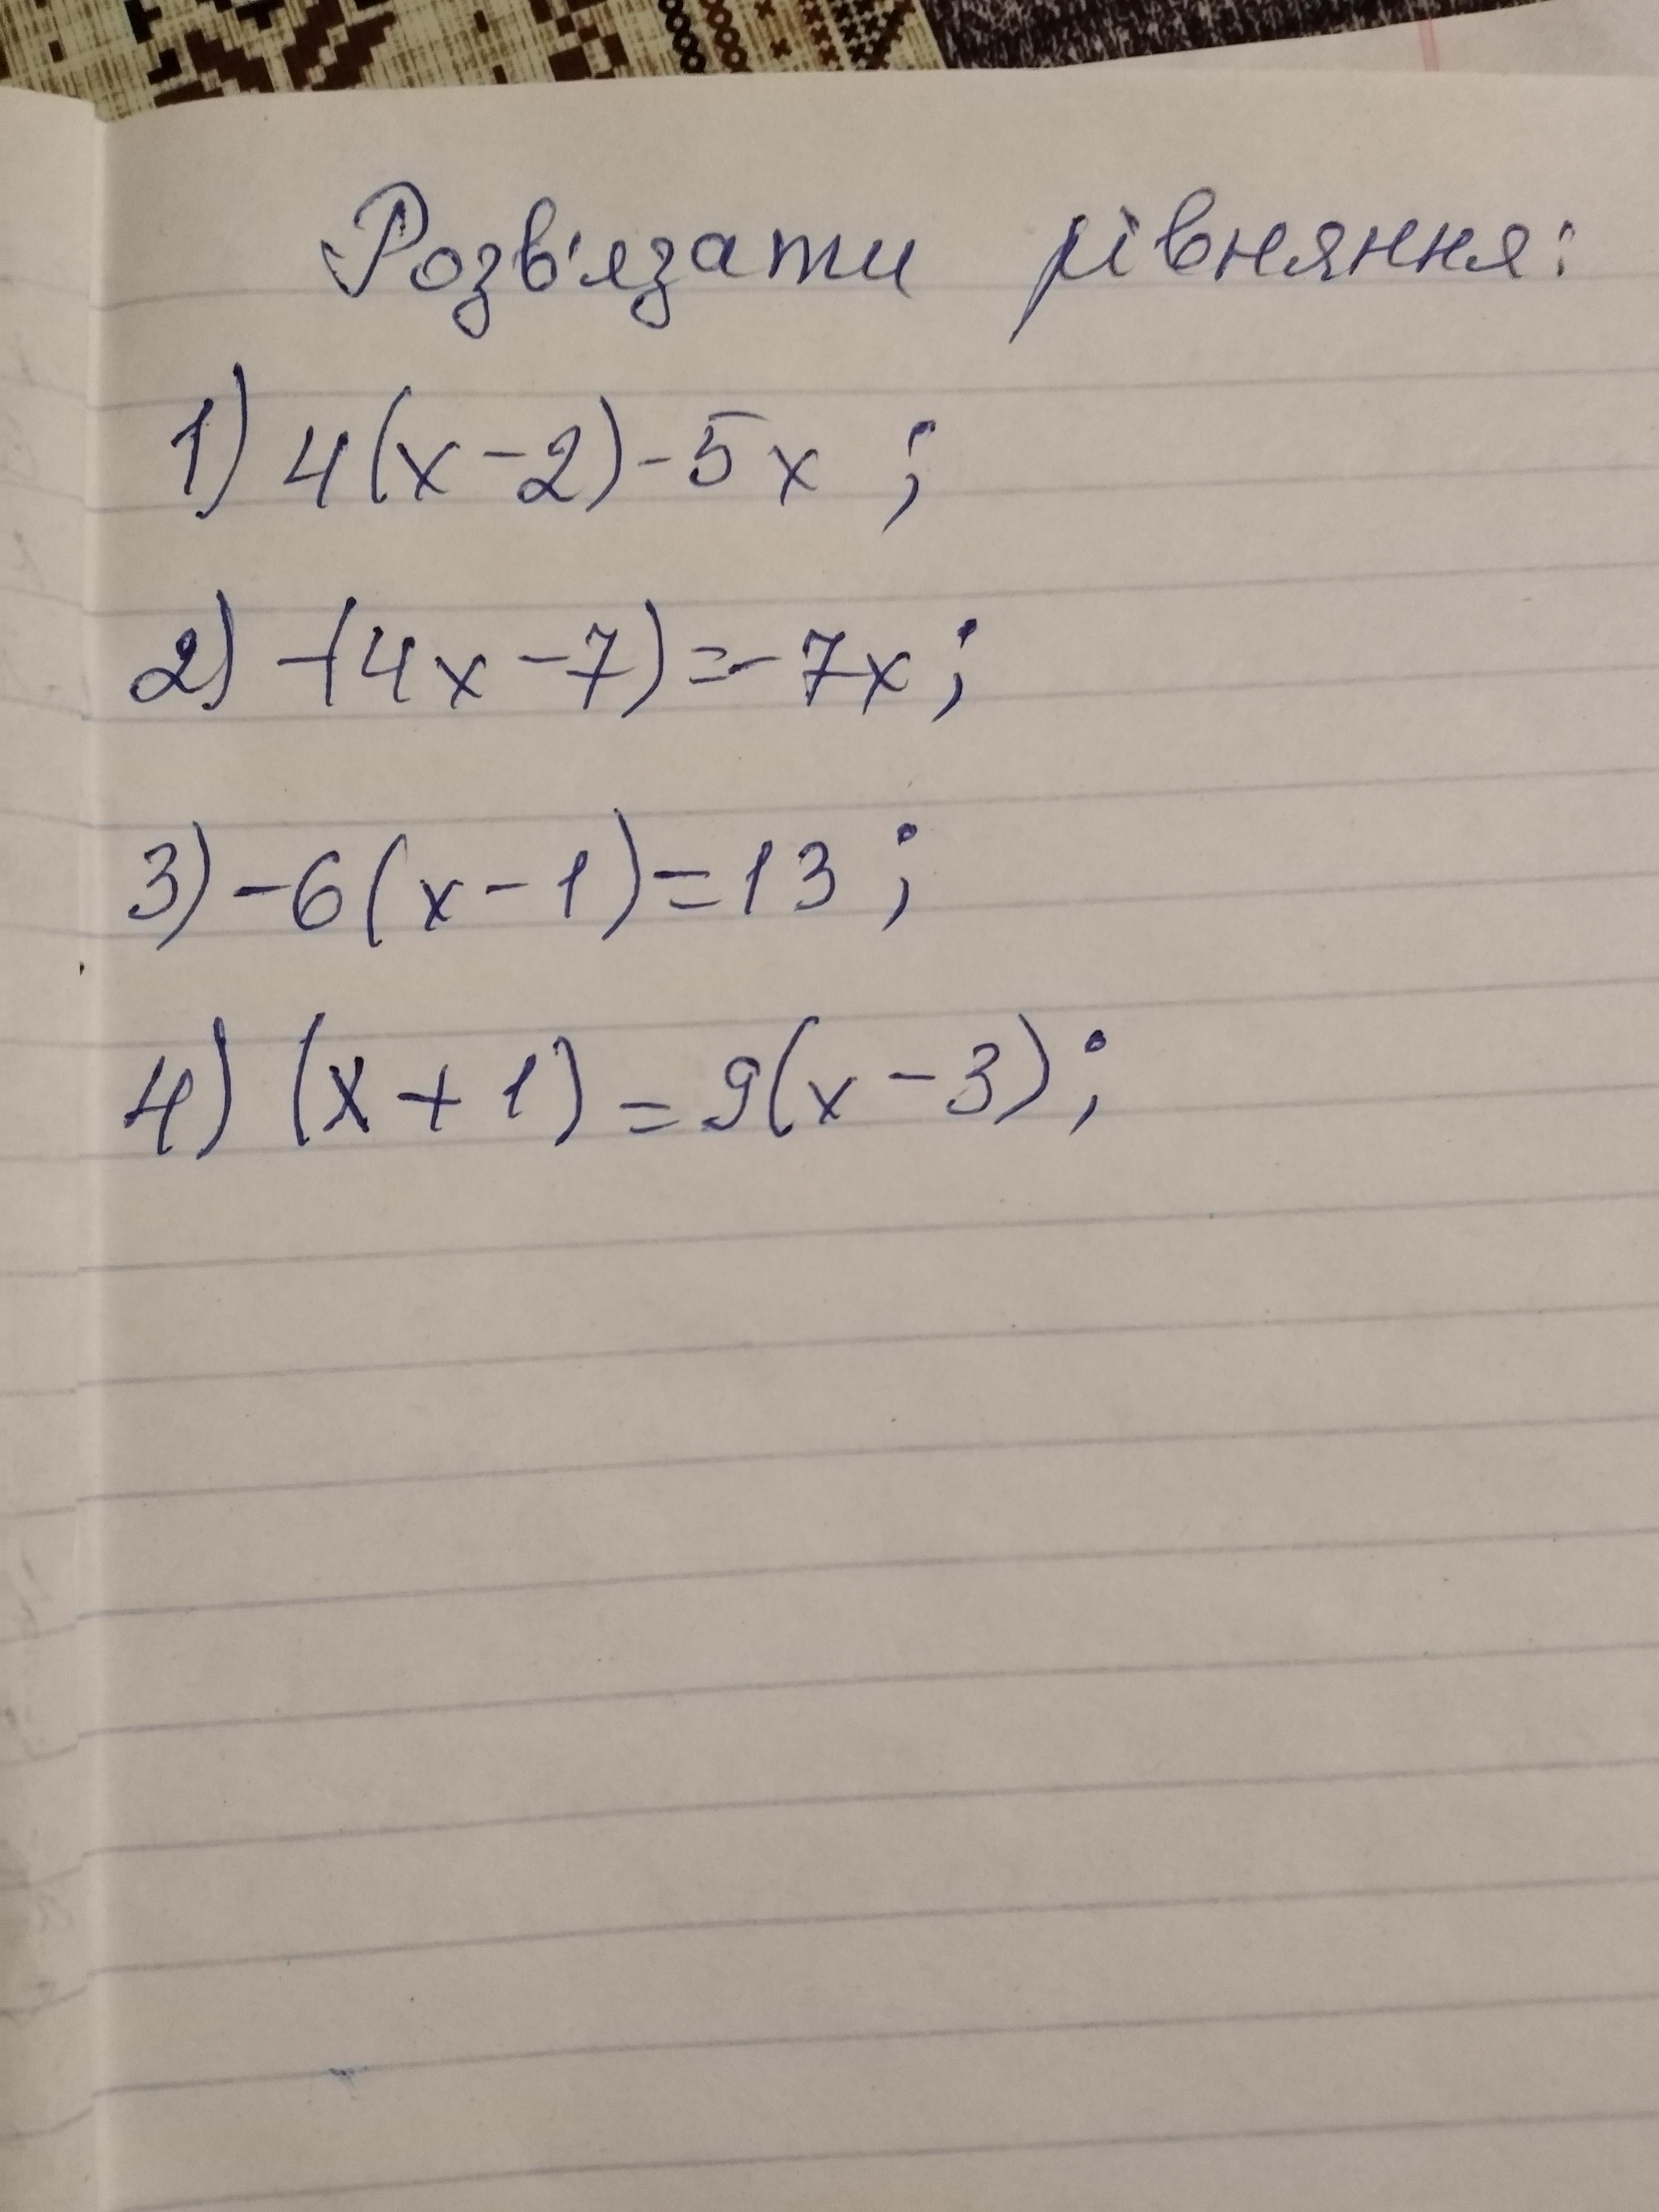 Розв'язати рівняння:
1) 4(x-2)-5x ;
2) -(4x-7)=-7x;
3) -6(x-1)=13;
4) (x+1)=9(x-3);